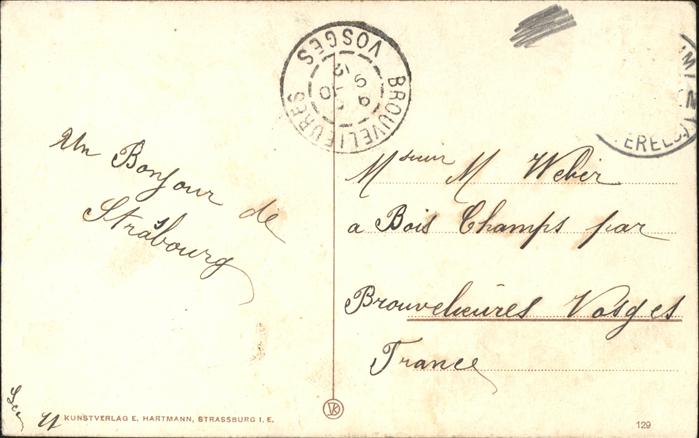 Un Bonjour de
Strasbourg
BROUVELIEURES
VOSGES
Msieur M Weber
a Bois Champs par
Brouvelieures Vosges
France
KUNSTVERLAG E. HARTMANN, STRASSBURG I. E.
129